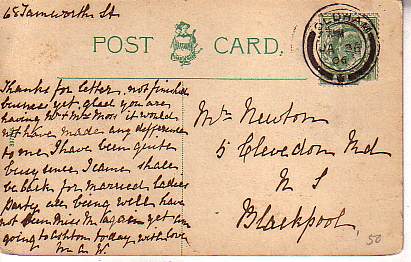 65 Tamworth St
POST CARD.
OLDHAM
JA 06
Thanks for letter, not finished
buisness yet, glad you are
having Mr & Mrs Moss it would
not have made any difference
to me I have been quite
busy since I came shall
be back for married Ladies
Party all being well have
not seen Miss M again yet am
going to Ashton to day with love
M. W.
Mrs Newton
5 Clevedon Rd
N S
Blackpool
50